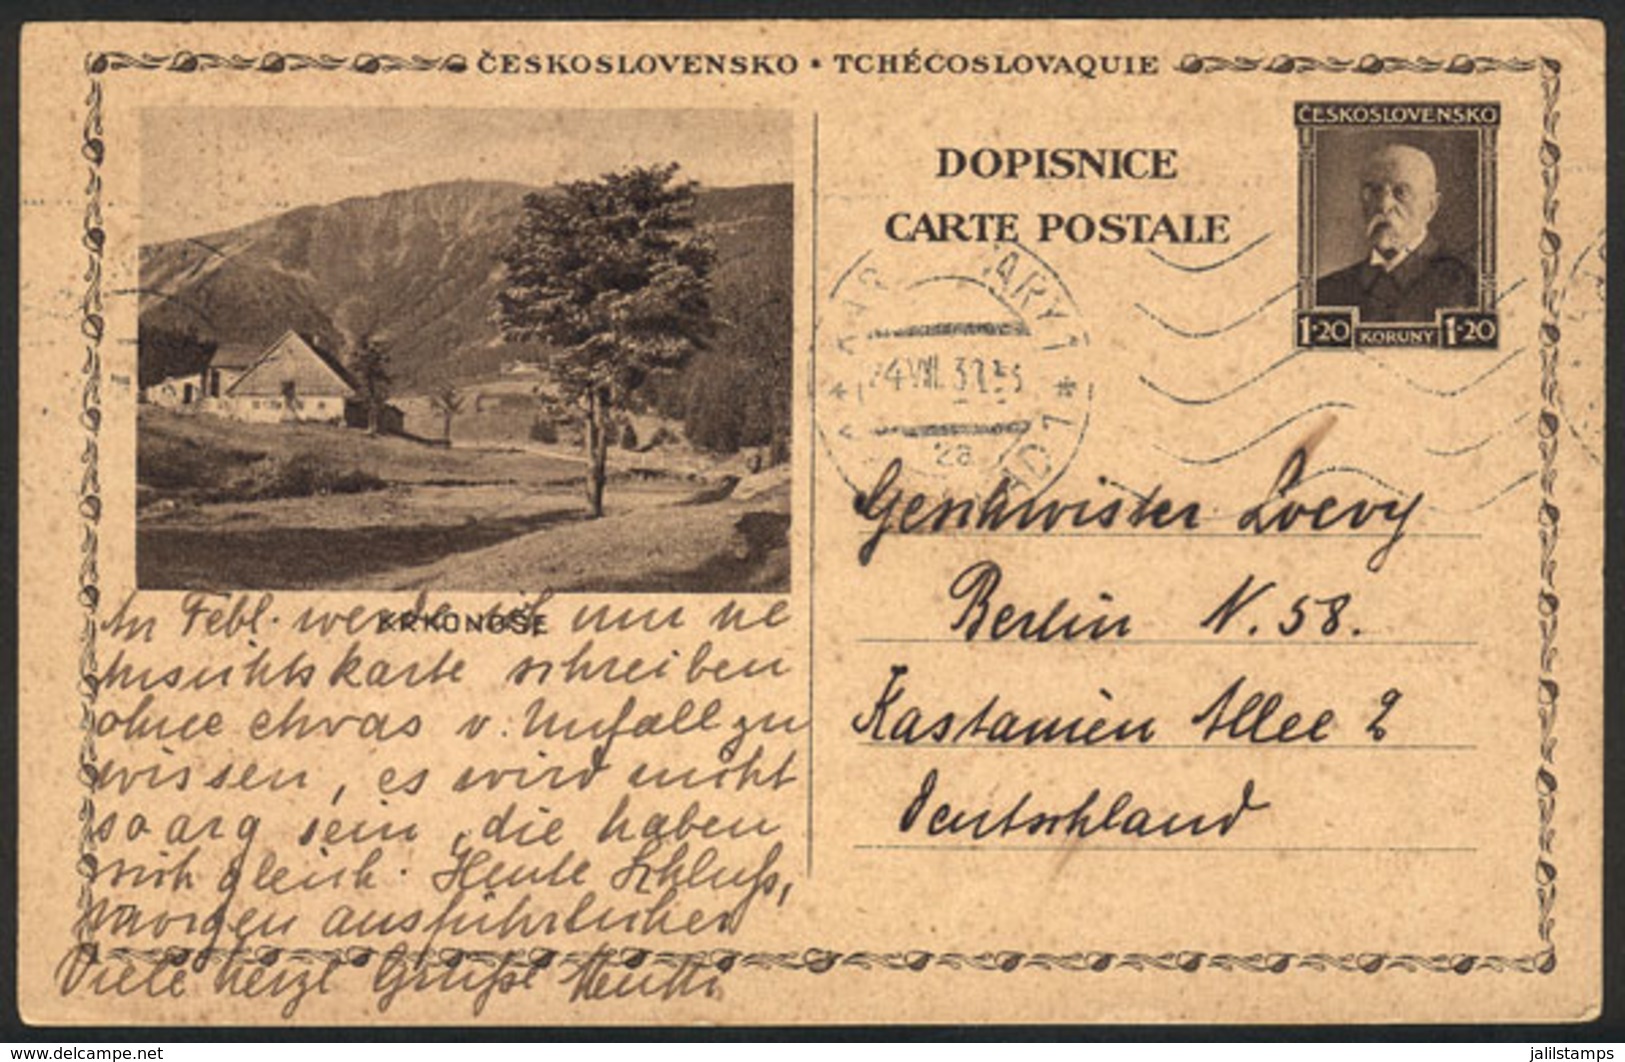 ČESKOSLOVENSKO • TCHÉCOSLOVAQUIE
DOPISNICE
CARTE POSTALE
ČESKOSLOVENSKO
1·20 KORUNY 1·20
VARY 1
24.VII.3
* *
2a
1
KRKONOŠE
Geschwister Loevy
Berlin N. 58.
Kastanien Allee 2
Deutschland
An Febl. werde ich nun ne
Ansichtskarte schreiben
ohne etwas v. Unfall zu
wissen, es wird nicht
so arg sein, die haben
sich gleich. Heute Schluß,
morgen ausführlicher
Viele herzl Grüße Mutti
delcampe.net
jalilstamps